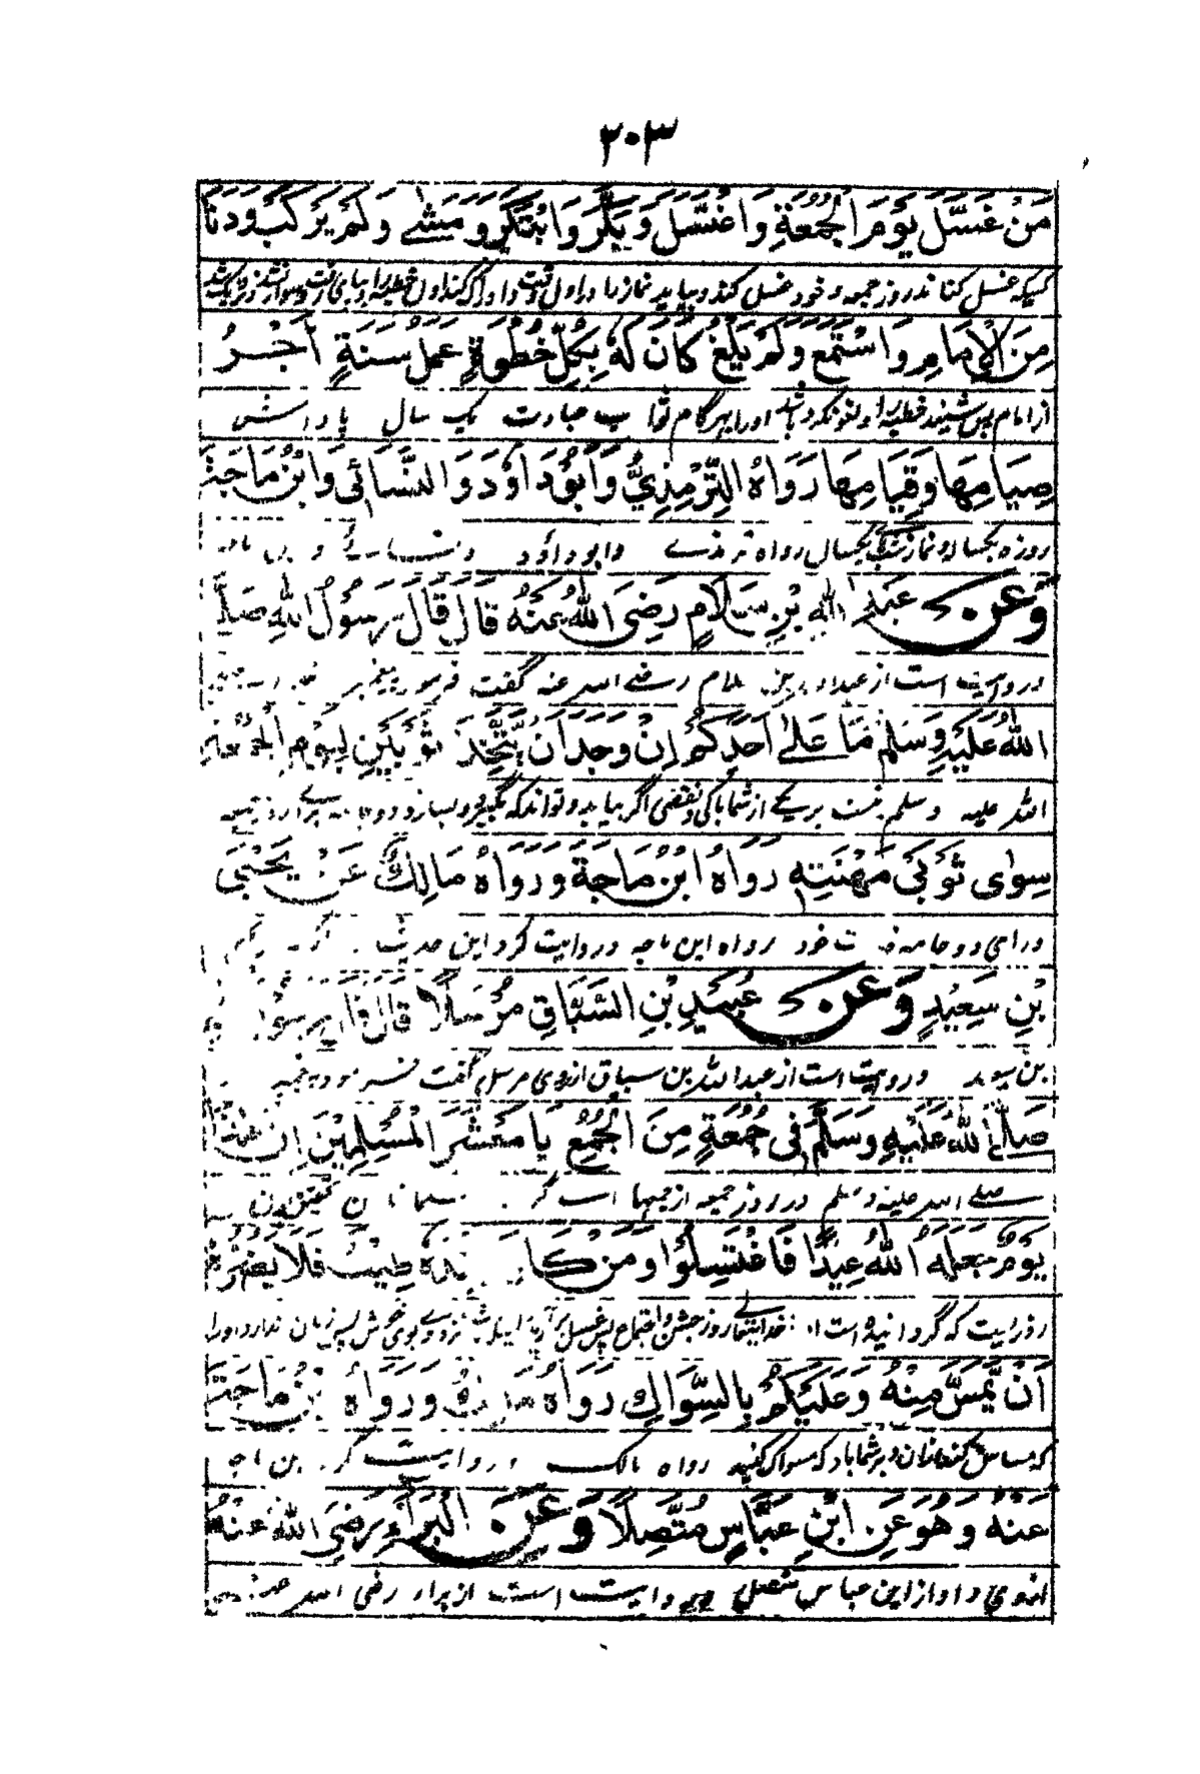 ۲۰۳
مَنْ غَسَّلَ يَوْمَ الْجُمُعَةِ وَاغْتَسَلَ وَبَكَّرَ وَابْتَكَرَ وَمَشٰى وَلَمْ يَرْكَبْ وَدَنَا
کسیکه غسل کناند روز جمعه و خود غسل کند و بیاید نماز را در اول وقت و ادراک کند اول خطبه را
مِنَ الْاِمَامِ وَاسْتَمَعَ وَلَمْ يَلْغُ كَانَ لَهٗ بِكُلِّ خُطْوَةٍ عَمَلُ سَنَةٍ اَجْرُ
از امام پس شنید خطبه را و لغو نکرد باشد او را بهر گام ثواب عبادت یک سال پاداش
صِيَامِهَا وَقِيَامِهَا رَوَاهُ التِّرْمِذِيُّ وَاَبُوْدَاوُدَ وَالنَّسَائِىُّ وَابْنُ مَاجَةَ
روزه یکساله و نماز یکسال رواه ترمذے وابوداؤد و نسائے و
وَعَنْ عَبْدِ اللهِ بْنِ سَلَامٍ رَضِىَ اللهُ عَنْهُ قَالَ قَالَ رَسُوْلُ اللهِ صَلَّى
و روایت است از عبدالله بن سلام رضے الله عنه گفت فرمود پیغمبر
اللهُ عَلَيْهِ وَسَلَّمَ مَا عَلٰى اَحَدِكُمْ اِنْ وَجَدَ اَنْ يَّتَّخِذَ ثَوْبَيْنِ لِيَوْمِ الْجُمُعَةِ
الله علیه وسلم نیست بر یکے از شما باکی و نقصی اگر بیابد و تواند که بگیرد
سِوٰى ثَوْبَىْ مَهْنَتِهٖ رَوَاهُ ابْنُ مَاجَةَ وَرَوَاهُ مَالِكٌ عَنْ يَحْيَى
ورای دو جامه خود رواه ابن ماجه و روایت کرد این حدیث
بْنِ سَعِيْدٍ وَعَنْ عُبَيْدِ بْنِ السَّبَّاقِ مُرْسَلًا قَالَ قَالَ رَسُوْلُ
بن و روایت است از عبدالله بن سباق ازوی مرسل گفت فرمود پیغمبر
صَلَّى اللهُ عَلَيْهِ وَسَلَّمَ فِىْ جُمُعَةٍ مِنَ الْجُمَعِ يَا مَعْشَرَ الْمُسْلِمِيْنَ اِنَّ هٰذَا
صلے الله علیه وسلم در روز جمعه از جمعها اے گروه مسلمانان بتحقیق این
يَوْمٌ جَعَلَهُ اللهُ عِيْدًا فَاغْتَسِلُوْا وَمَنْ كَانَ عِنْدَهٗ طِيْبٌ فَلَا يَضُرُّهٗ
روزیست که گردانیده است خدایتعالی روز جشن و اجتماع پس غسل بوی خوش پس زیان ندارد او را
اَنْ يَّمَسَّ مِنْهُ وَعَلَيْكُمْ بِالسِّوَاكِ رَوَاهُ مَالِكٌ وَرَوَاهُ ابْنُ مَاجَةَ
که مساس کند ازان و بر شما باد که مسواک کنید رواه مالک و روایت کرد ابن ماجه
عَنْهُ وَهُوَ عَنِ ابْنِ عَبَّاسٍ مُتَّصِلًا وَعَنِ الْبَرَآءِ رَضِىَ اللهُ عَنْهُ
ازوی و او از ابن عباس متصل و روایت است از براء رضی الله عنه